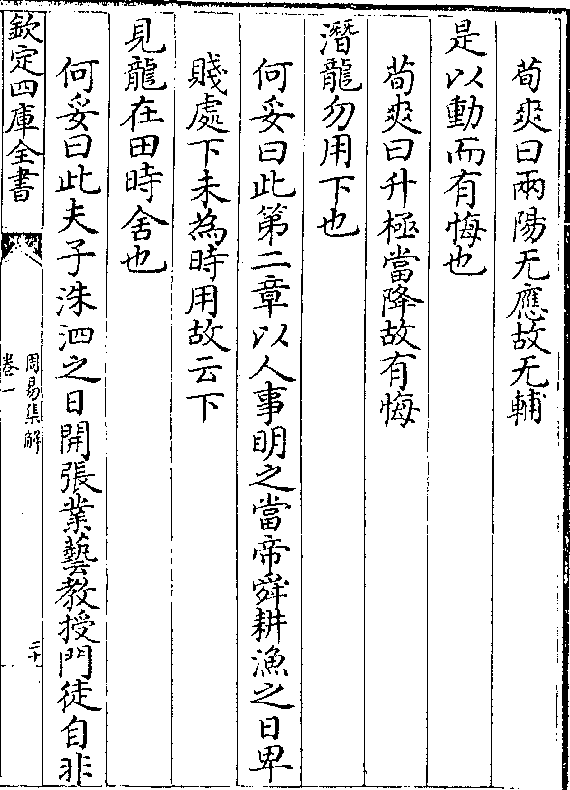 荀爽曰兩陽无應故无輔
是以動而有悔也
荀爽曰升極當降故有悔
潛龍勿用下也
何妥曰此第二章以人事明之當帝舜耕漁之日卑
賤處下未為時用故云下
見龍在田時舍也
何妥曰此夫子洙泗之日開張業藝教授門徒自非
欽定四庫全書
周易集解
卷一
二十